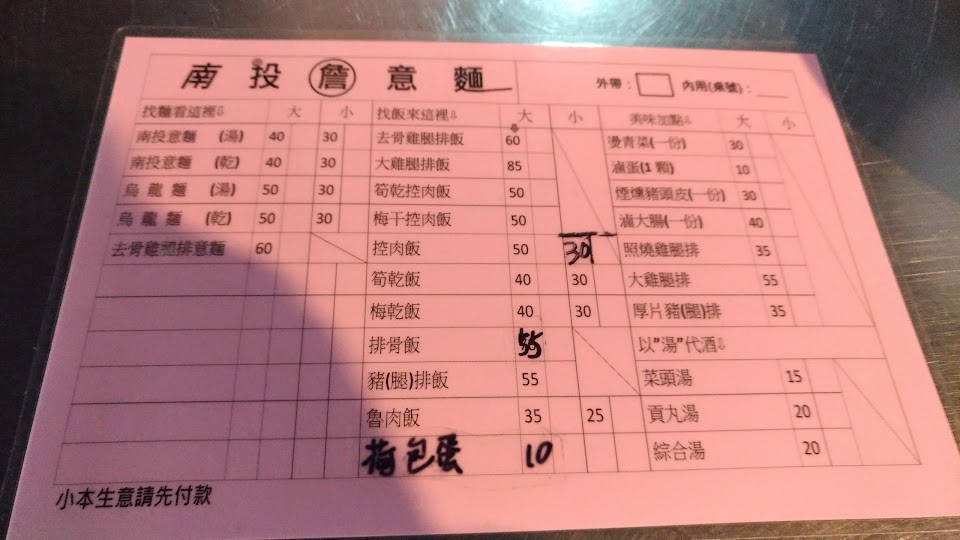 南投詹意麵 外帶: 內用(桌號):____
找麵看這裡⇩ 大 小 找飯來這裡⇩ 大 小 美味加點⇩ 大 小
南投意麵 (湯) 40 30 去骨雞腿排飯 60 燙青菜(一份) 30
南投意麵 (乾) 40 30 大雞腿排飯 85 滷蛋(1 顆) 10
烏龍麵 (湯) 50 30 筍乾控肉飯 50 煙燻豬頭皮(一份) 30
烏龍麵 (乾) 50 30 梅干控肉飯 50 滷大腸(一份) 40
去骨雞腿排意麵 60 控肉飯 50 30 照燒雞腿排 35
筍乾飯 40 30 大雞腿排 55
梅乾飯 40 30 厚片豬(腿)排 35
排骨飯 55 以"湯"代酒⇩
豬(腿)排飯 55 菜頭湯 15
魯肉飯 35 25 貢丸湯 20
荷包蛋 10 綜合湯 20
小本生意請先付款